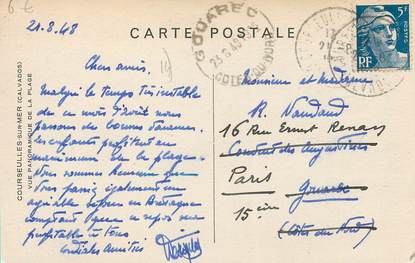 6 €
21.8.48
CARTE POSTALE
GOUAREC
23-8-48
COTES-DU-NORD
5F
RF
14
COURSEULLES-SUR-MER (CALVADOS)
VUE PANORAMIQUE DE LA PLAGE
Chers amis,
Malgré le temps très instable
de ce mois d'août nous
passons de bonnes vacances.
Les enfants profitent au
maximum de la plage.
Nous sommes
Vous également
agréable séjour en Bretagne
comptant que ce repos sera
profitable à tous
cordiales amitiés
Monsieur et madame
R. Naudaud
16 Rue Ernest Renan
Couvent des Augustines
Paris
Gouarec
15 ème
(Côtes du Nord)